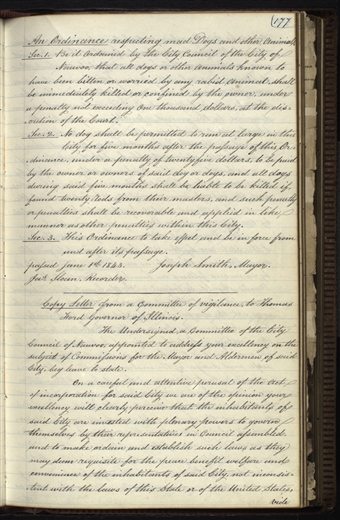 177
An Ordinance respecting mad Dogs and other Animals
Sec. 1. Be it Ordained by the City Council of the City of
Nauvoo, that all dogs or other animals known to
have been bitten or worried by any rabid Animal, shall
be immediately killed or confined by the owner, under
a penalty not exceeding One thousand dollars, at the dis-
cretion of the Court.
Sec. 2. No dog shall be permitted to run at large in this
City for five months after the passage of this Or-
dinance, under a penalty of twenty five dollars, to be paid
by the owner or owners of said dog or dogs, and all dogs
during said five months shall be liable to be killed if
found twenty rods from their masters, and such penalty
or penalties shall be recoverable and applied in like
manner as other penalties within this City.
Sec. 3. This Ordinance to take effect and be in force from
and after its passage.
passed June 1st 1843. Joseph Smith, Mayor.
Jas. Sloan, Recorder.
Copy Letter from a Committee of vigilance, to Thomas
Ford Governor of Illinois.
The Undersigned, a Committee of the City
Council of Nauvoo, appointed to address your excellency on the
subject of Commissions for the Mayor and Aldermen of said
City, beg leave to state.
On a careful and attentive perusal of the act
of incorporation for said City we are of the opinion your
excellency will clearly perceive that the inhabitants of
said City are invested with plenary powers to govern
themselves by their representatives in Council assembled,
and to make ordain and establish such laws as they
may deem requisite for the peace benefit welfare and
convenience of the inhabitants of said City, not inconsis-
tent with the laws of this State or of the United States,
vide